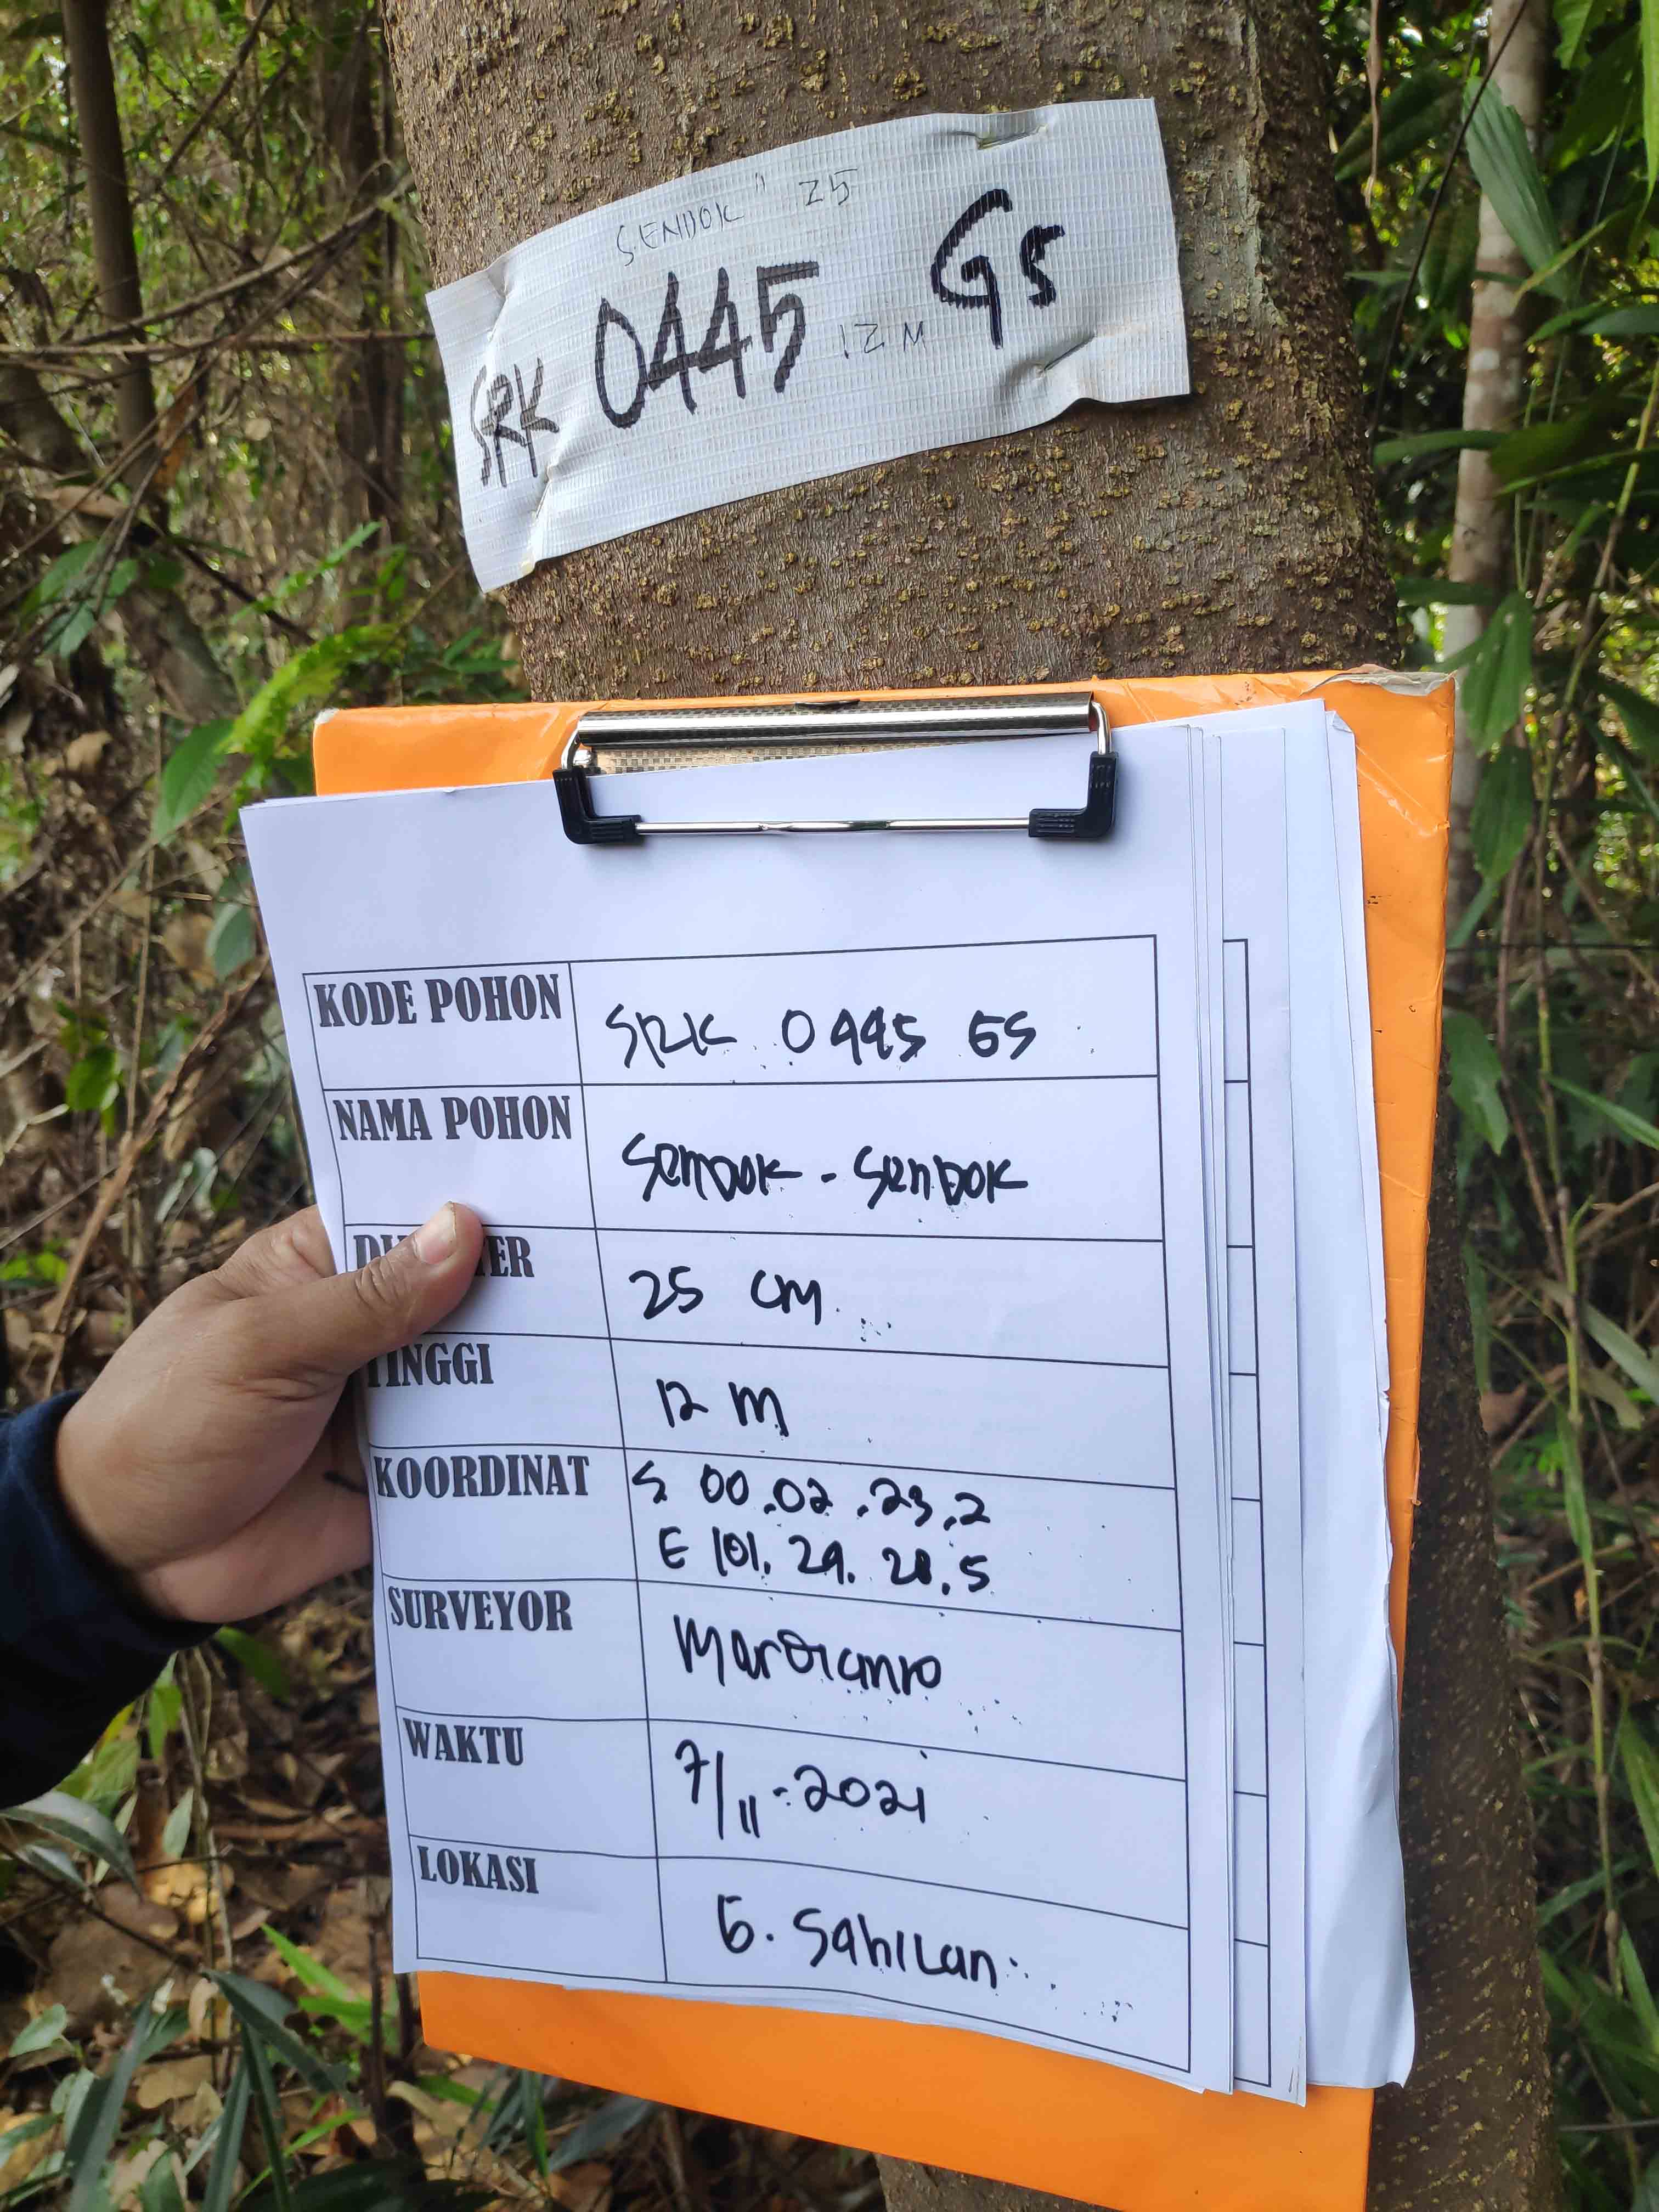 SENDOK" 25
SRK 0445 12 M GS
KODE POHON SRK 0445 GS
NAMA POHON SENDOK - SENDOK
TINGGI 12 M
25 CM
KOORDINAT S 00.02.23,2
E 101. 29. 28,5
SURVEYOR Mardianto
WAKTU 7/11-2021
LOKASI G. Sahilan